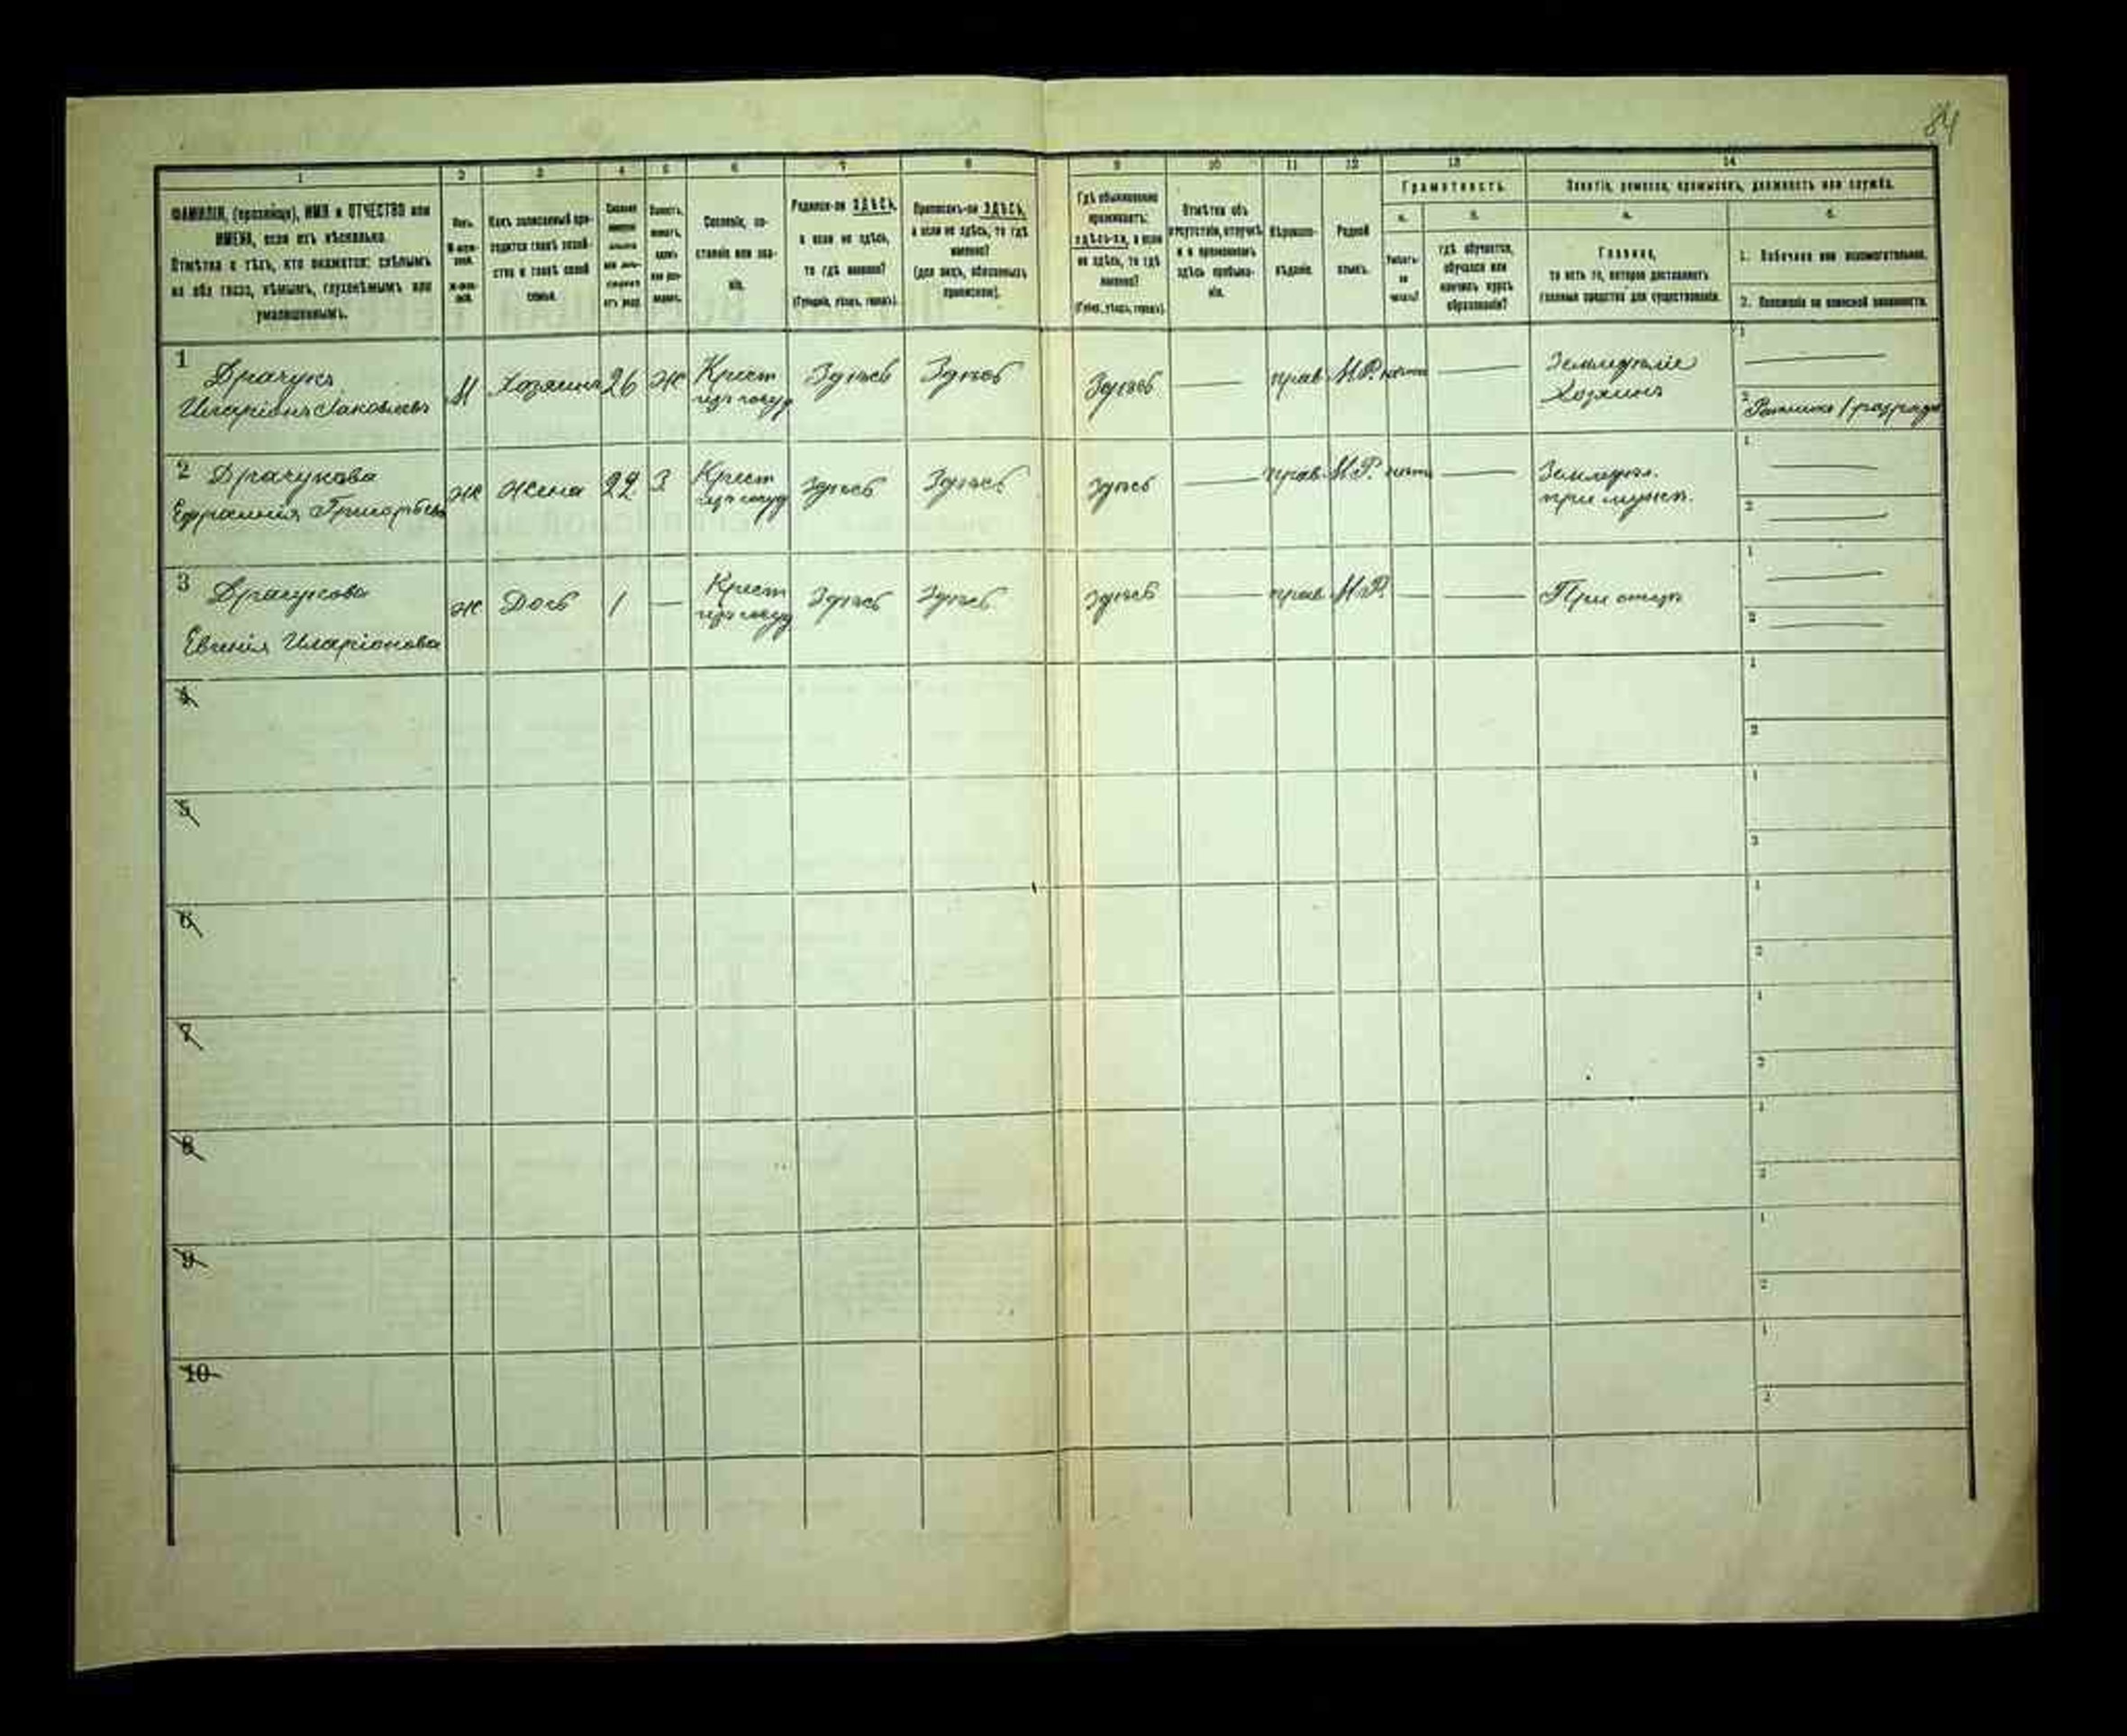 84
1
2
3
4
5
6
7
8
9
10
11
12
13
14
ФАМИЛІЯ, (прозвище), ИМЯ и ОТЧЕСТВО или
ИМЕНА, если ихъ нѣсколько.
Отмѣтка о тѣхъ, кто окажется: слѣпымъ
на оба глаза, нѣмымъ, глухонѣмымъ или
умалишеннымъ.
Полъ.
Какъ записанный при-
ходится главѣ хозяй-
ства и главѣ своей
семьи.
Сословіе, со-
стояніе или зва-
ніе.
Родился-ли ЗДѢСЬ,
а если не здѣсь,
то гдѣ именно?
(Губернія, уѣздъ, городъ).
Приписанъ-ли ЗДѢСЬ,
а если не здѣсь, то гдѣ
именно?
(для лицъ, обязанныхъ
припискою).
Гдѣ обыкновенно
проживаетъ:
здѣсь-ли, а если
не здѣсь, то гдѣ
именно?
(Губер., уѣздъ, городъ).
Отмѣтка объ
отсутствіи, отлучкѣ
и о временномъ
здѣсь пребыва-
ніи.
Вѣроиспо-
вѣданіе.
Родной
языкъ.
Грамотность.
а.
б.
Умѣетъ-
ли
читать?
гдѣ обучается,
обучался или
кончилъ курсъ
образованія?
Занятіе, ремесло, промыселъ, должность или служба.
а.
б.
Главное,
то есть то, которое доставляетъ
главныя средства для существованія.
1. Побочное или вспомогательное.
2. Положеніе по воинской повинности.
1 Драчукъ
Иларіонъ Яковлевъ
М
Хозяинъ
26
Ж
Крест
изъ госуд
Здѣсь
Здѣсь
Здѣсь
—
прав
М.Р.
—
Земледѣліе
Хозяинъ
1
—
2
Ратникъ 1 разряда
2 Драчукова
Григорьева
ж
Жена
22
З
Крест
изъ госуд
Здѣсь
Здѣсь
Здѣсь
—
прав
М.Р.
—
Земледѣл.
при мужѣ.
1
—
2
—
3 Драчукова
Евгенія Иларіонова
ж
Дочь
1
—
Крест
изъ госуд
Здѣсь
Здѣсь
Здѣсь
—
прав
М.Р.
—
—
При отцѣ
1
—
2
—
4
1
2
5
1
2
6
1
2
7
1
2
8
1
2
9
1
2
10
1
2